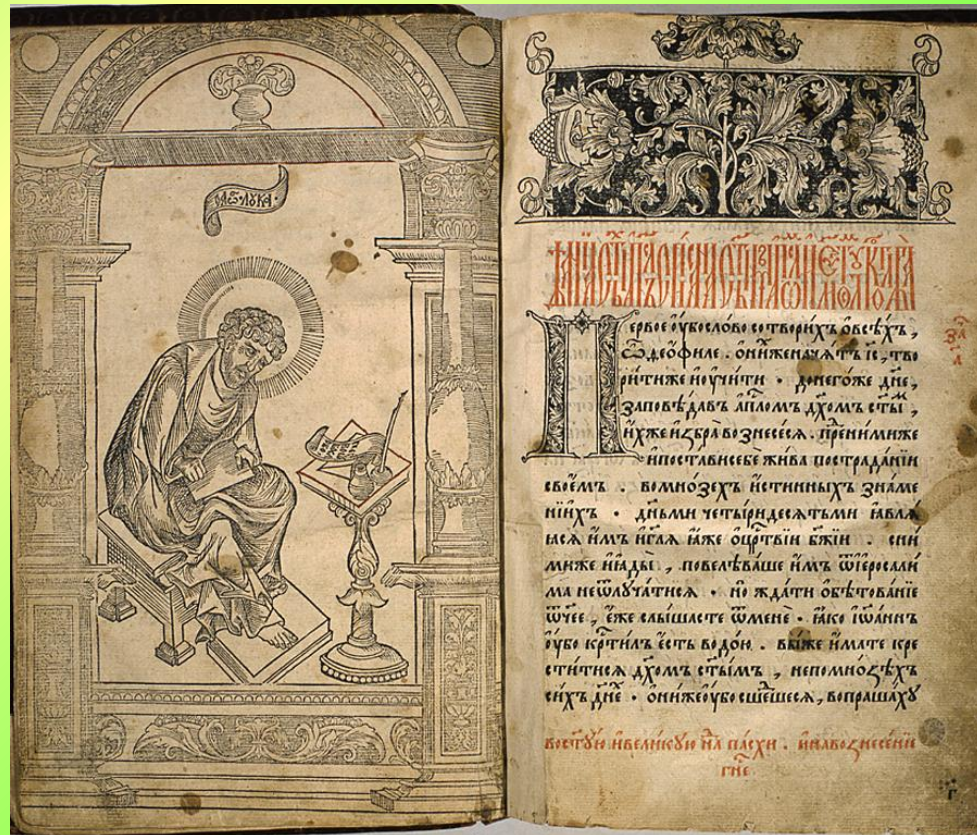 Лꙋка
ервое ᲂубо слово сотворихъ ѡ всѣхъ,
ѽ деѡфиле. ѡ нихже начятъ іс҃, тво
рити же и ᲂучити. до негоже дне,
заповѣдавъ ап҃ломъ дх҃омъ ст҃ы,
ихже избра вознесеся. пре ними же
и постави себе жива по страданіи
своемъ. во мнозехъ истинныхъ знаме
ніихъ. дньми четыридесятьми ꙗвлѧ
ꙗсѧ имъ и гл҃ѧ ꙗже ѡ цр҃твіи бж҃іи. сни
миже и ꙗды, повелѣваше имъ ѿ іеросали
ма не ѿлучатисѧ. но ждати обѣтованіе
ѿчее, еже слышасте ѿ мене. ꙗко іѡаннъ
ᲂубо кр҃тилъ есть водою. вы же имате кре
ститисѧ дх҃омъ ст҃ымъ, не по мнозѣхъ
сихъ дне. ѡни же ᲂубо сшешесѧ, вопрашахꙋ
во ст҃ꙋю и великꙋю нл҃ пасхи. и на вознесеніе
гн҃е